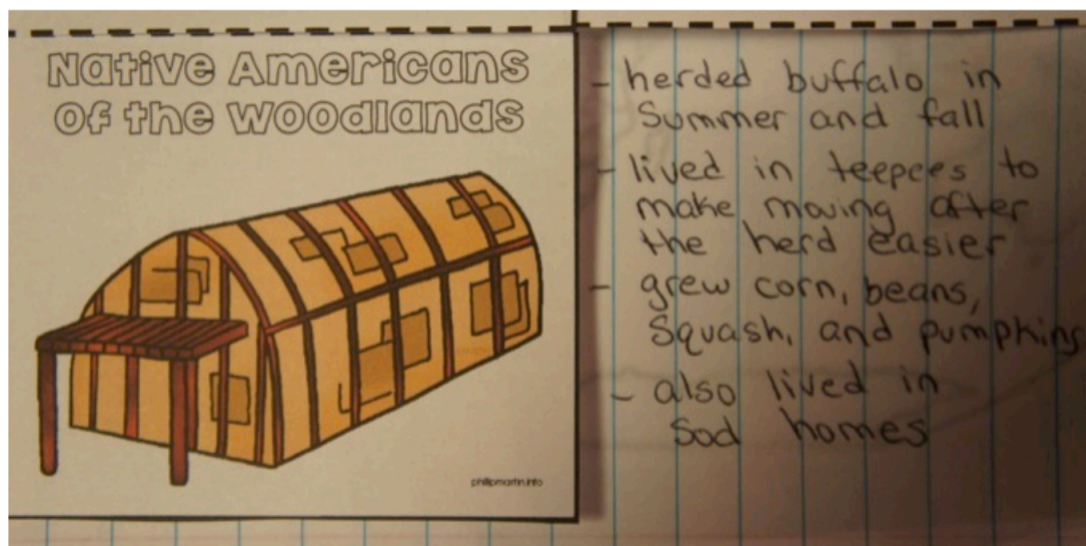 Native Americans
Of the Woodlands
phillipmartin.info
- herded buffalo in
Summer and fall
- lived in teepees to
make moving after
the herd easier
- grew corn, beans,
Squash, and pumpkins
- also lived in
Sod homes